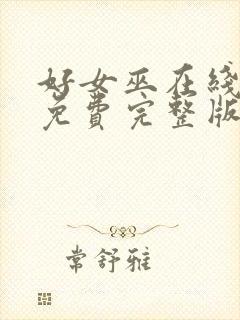 好女巫在线
免费完整版
常舒雅